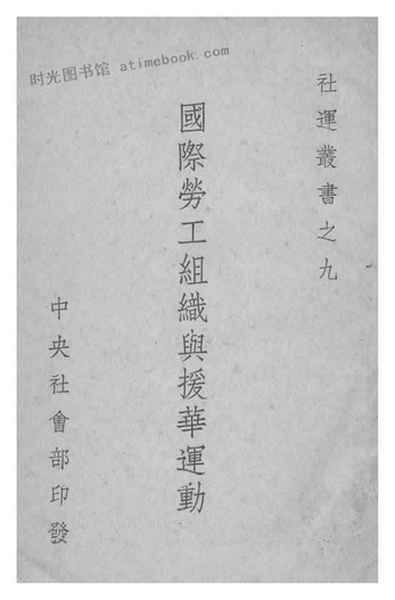 时光图书馆 atimebook.com
社運叢書之九
國際勞工組織與援華運動
中央社會部印發